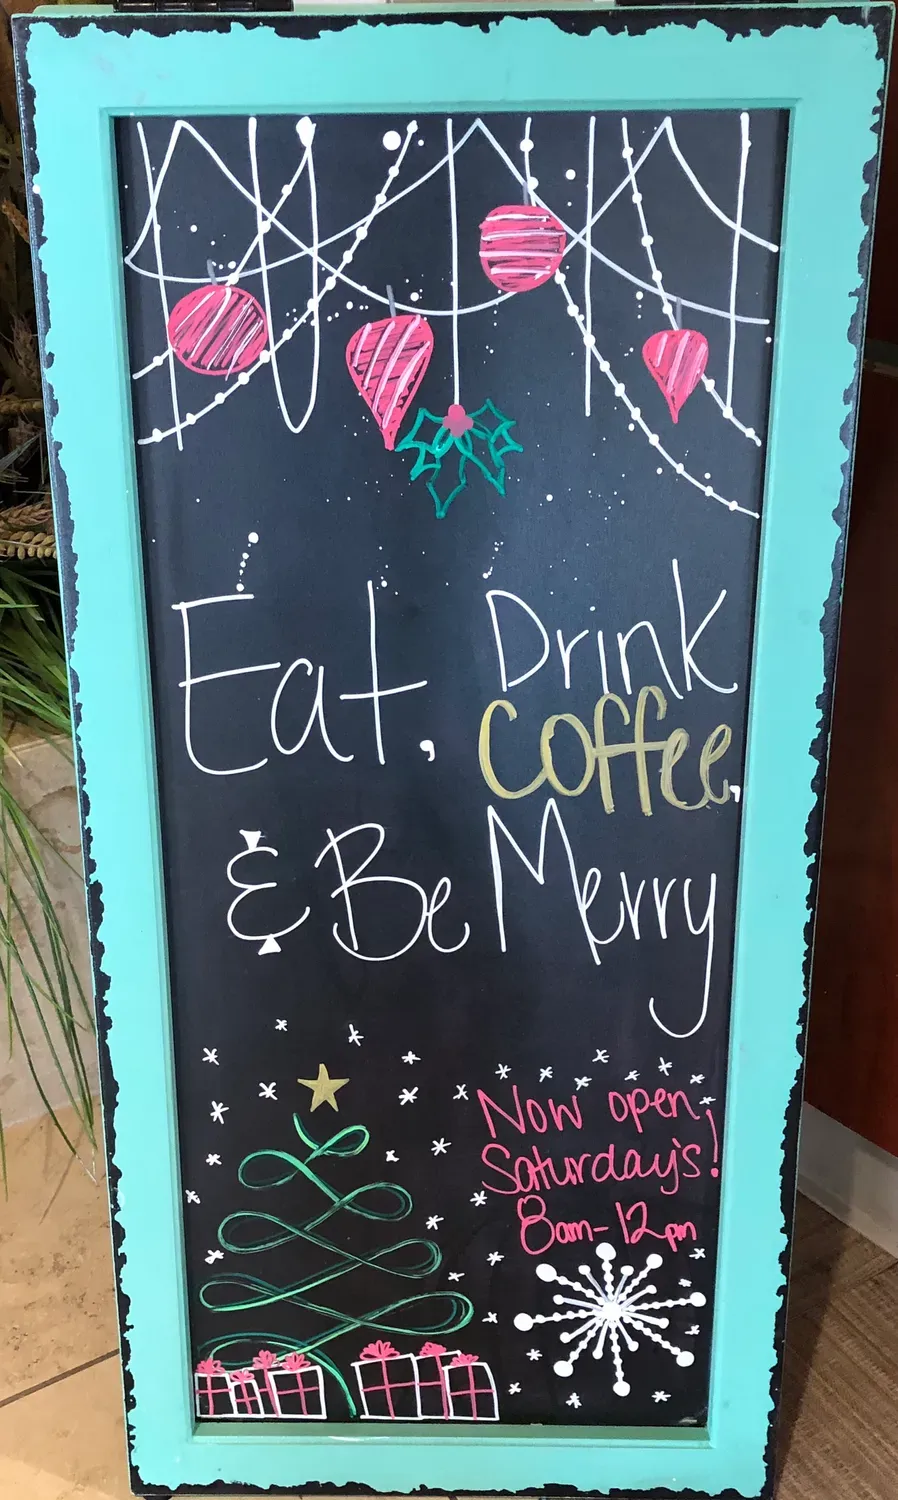 Eat, Drink
Coffee,
& Be Merry
Now open,
Saturday's!
8am-12pm